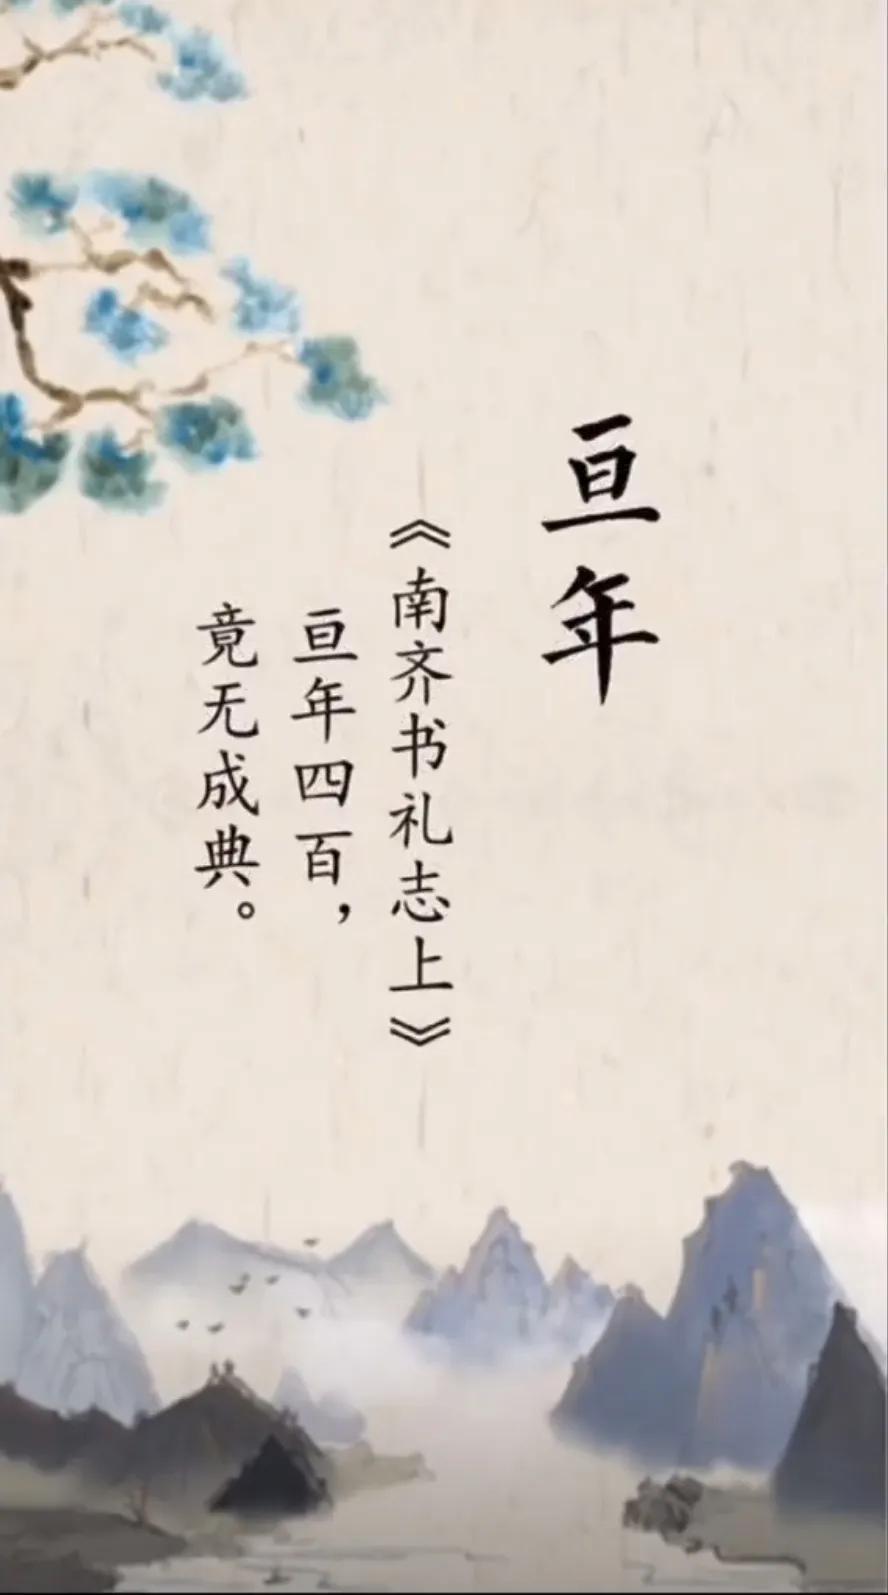 亘年
《南齐书礼志上》
亘年四百，
竟无成典。